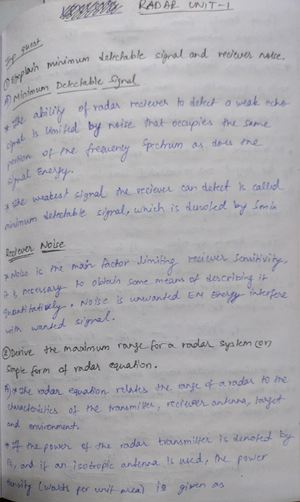 RADAR UNIT-1
Imp quest
① Explain minimum detectable signal and reciever noise.
A) Minimum Detectable Signal
* The ability of radar reciever to detect a weak echo
signal is limited by noise that occupies the same
portion of the frequency spectrum as does the
signal Energy.
* The weakest signal the reciever can detect is called
minimum detectable signal, which is denoted by Smin
Reciever Noise
* Noise is the main factor limiting reciever sensitivity,
it is necessary to obtain some means of describing it
quantitatively. Noise is unwanted EM Energy interfere
with wanted signal.
② Derive the maximum range for a radar system (or)
simple form of radar equation.
A) * The radar equation relates the range of a radar to the
characteristics of the transmitter, reciever antenna, target
and environment.
* If the power of the radar transmitter is denoted by
Pt, and if an isotropic antenna is used, the power
density (watts per unit area) is given as